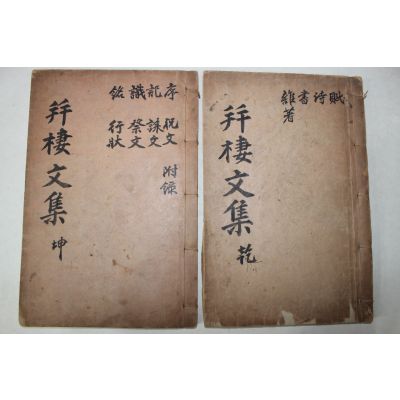 賦詩書
雜著
幷棲文集 乾
序記識銘
祝文 誄文 祭文 行狀
附錄
幷棲文集 坤